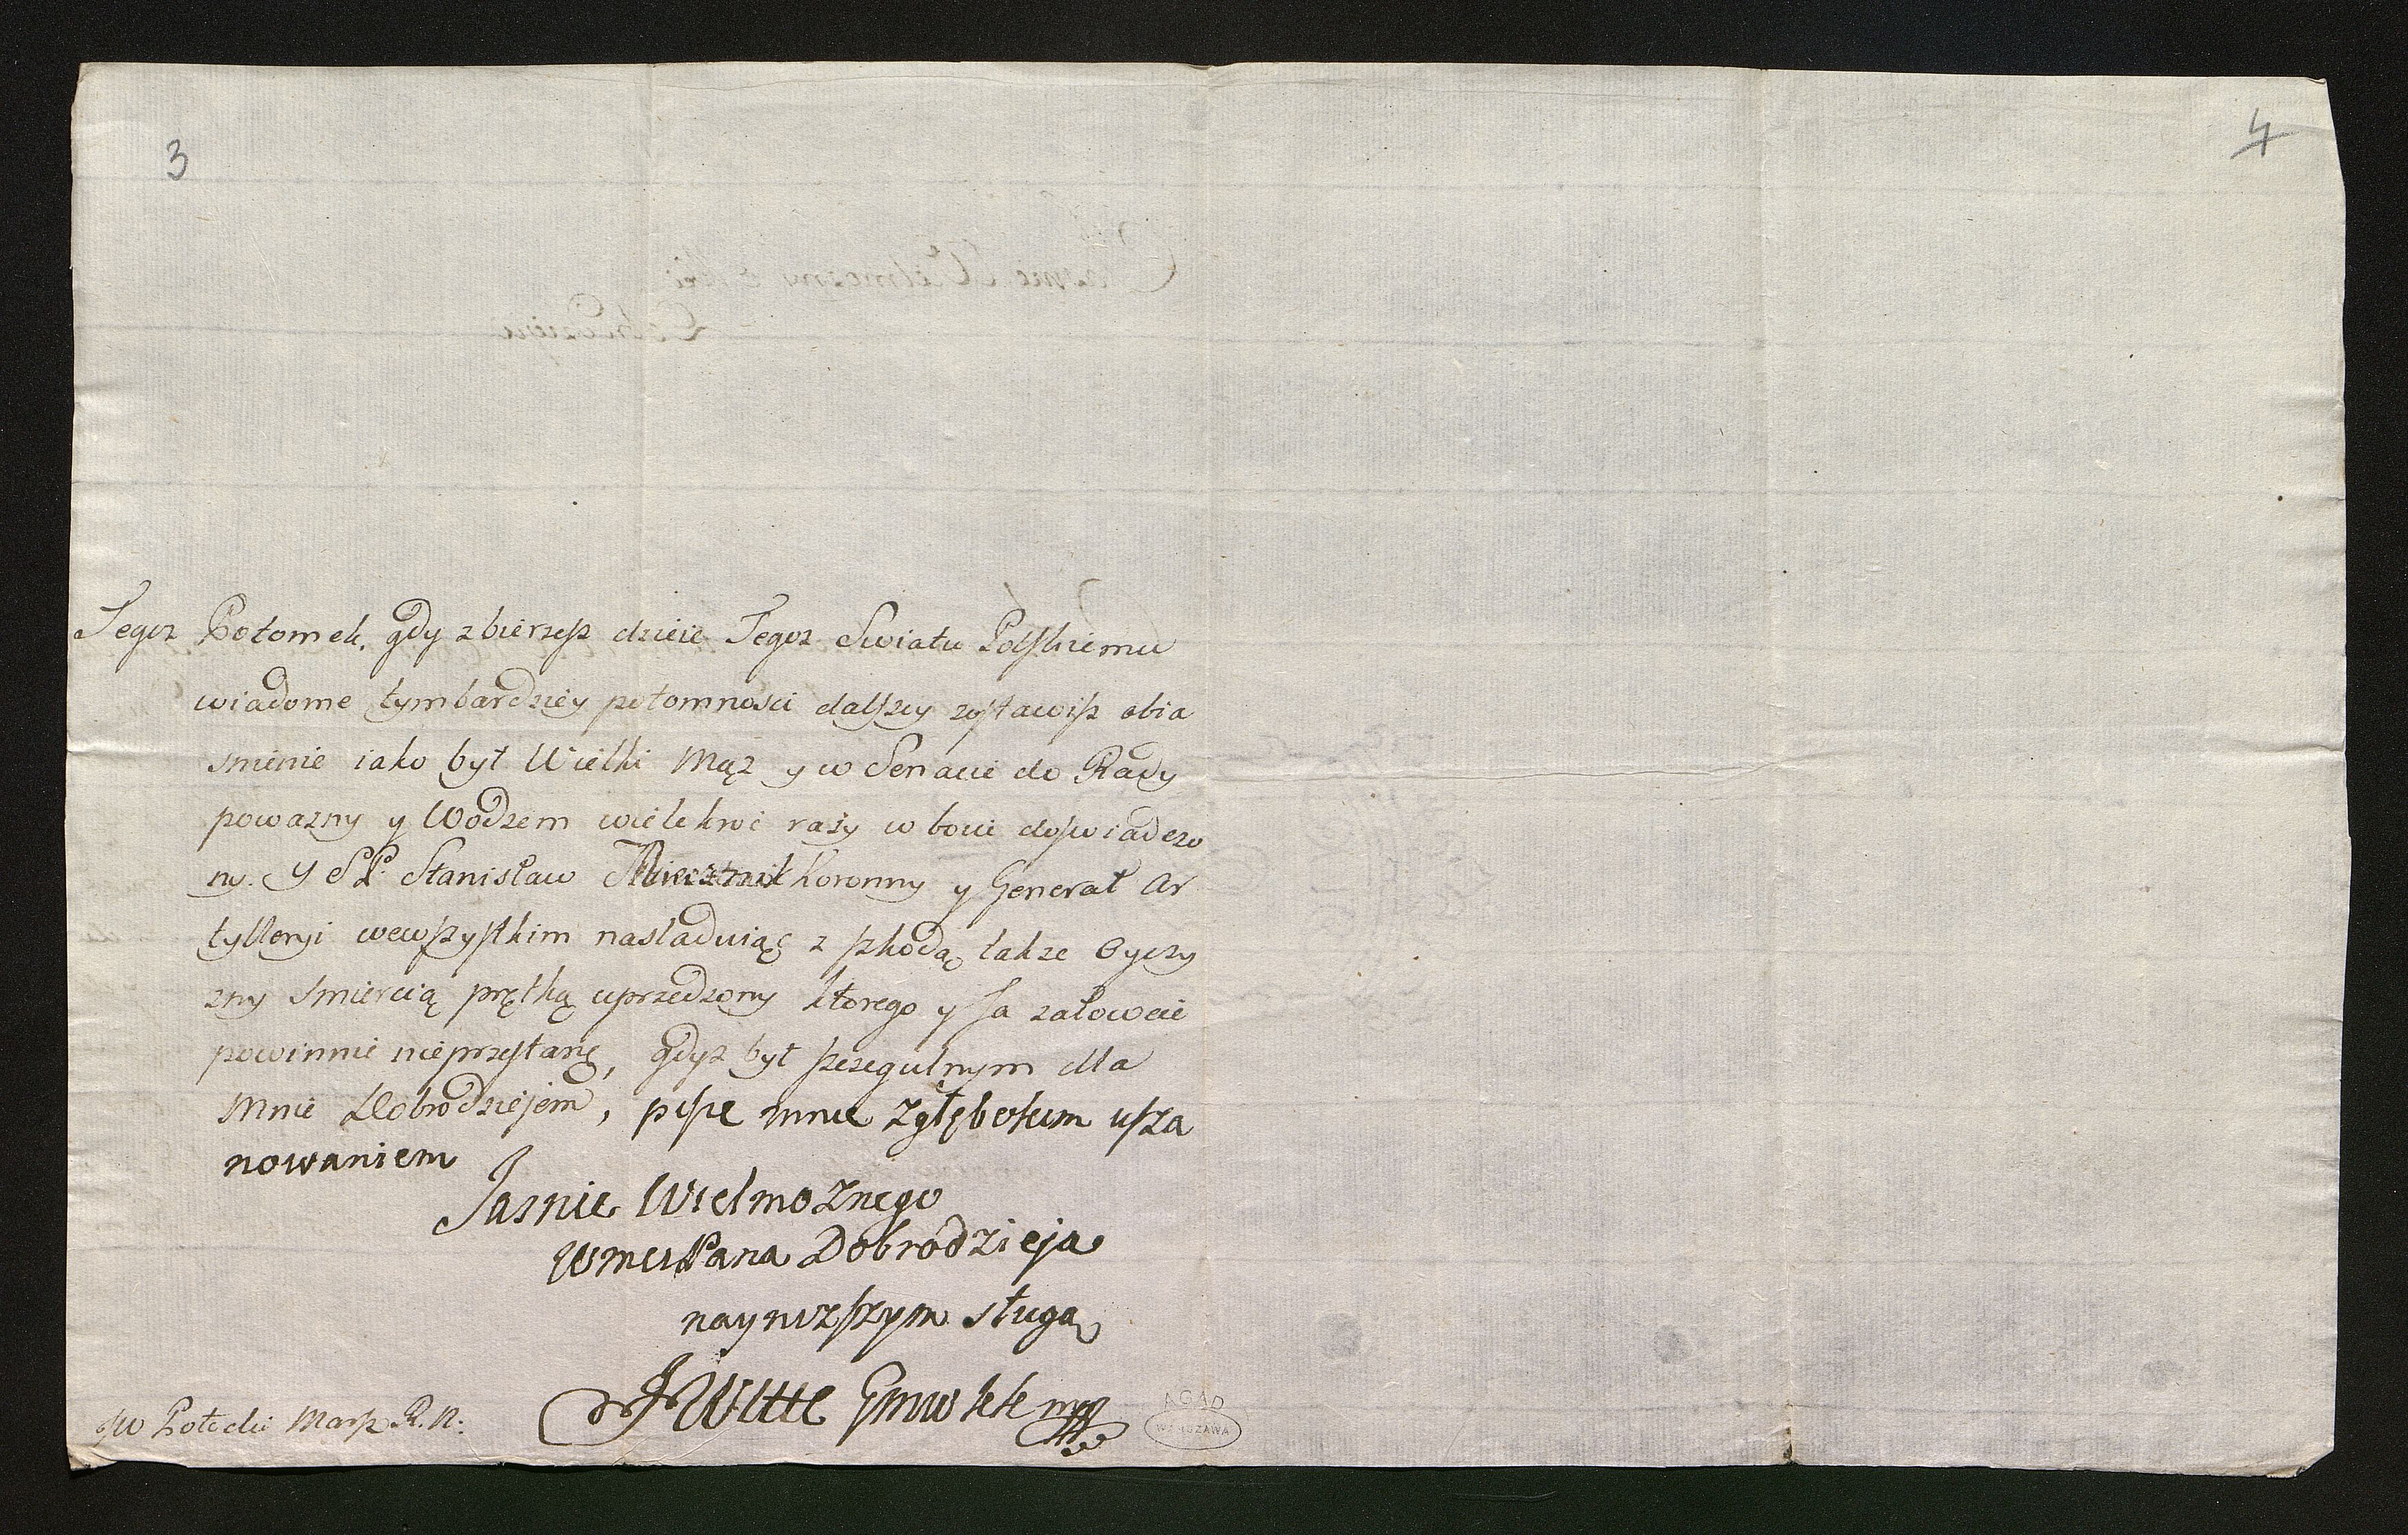 3
4
Tegoz Potomek, gdy zbierzesz dzieie Tegoz Swiatu Polskiemu
wiadome tymbardziey potomnosci dalszey zostawisz obia
snienie iako był Wielki Mąz y w Senacie do Rady
powazny y Wodzem wielekroc razy w boiu doswiadczo
ny. Y SP. Stanisław Miecznik Koronny y Generał Ar
tylleryi wewszystkim nasladuiąc z szkodą takze Oyczy
zny smiercią prętką uprzedzony ktorego y Ja załowac
powinnie nieprzestanę, gdyz był szczegulnym dla
Mnie Dobrodziejem, pisze mnie zgłębokim usza
nowaniem
Jasnie Wielmoznego
WmcsPana Dobrodzieja
naynizszym sługą
JWitte
JW Potocki Marsz. R. N:
AGAD
WARSZAWA